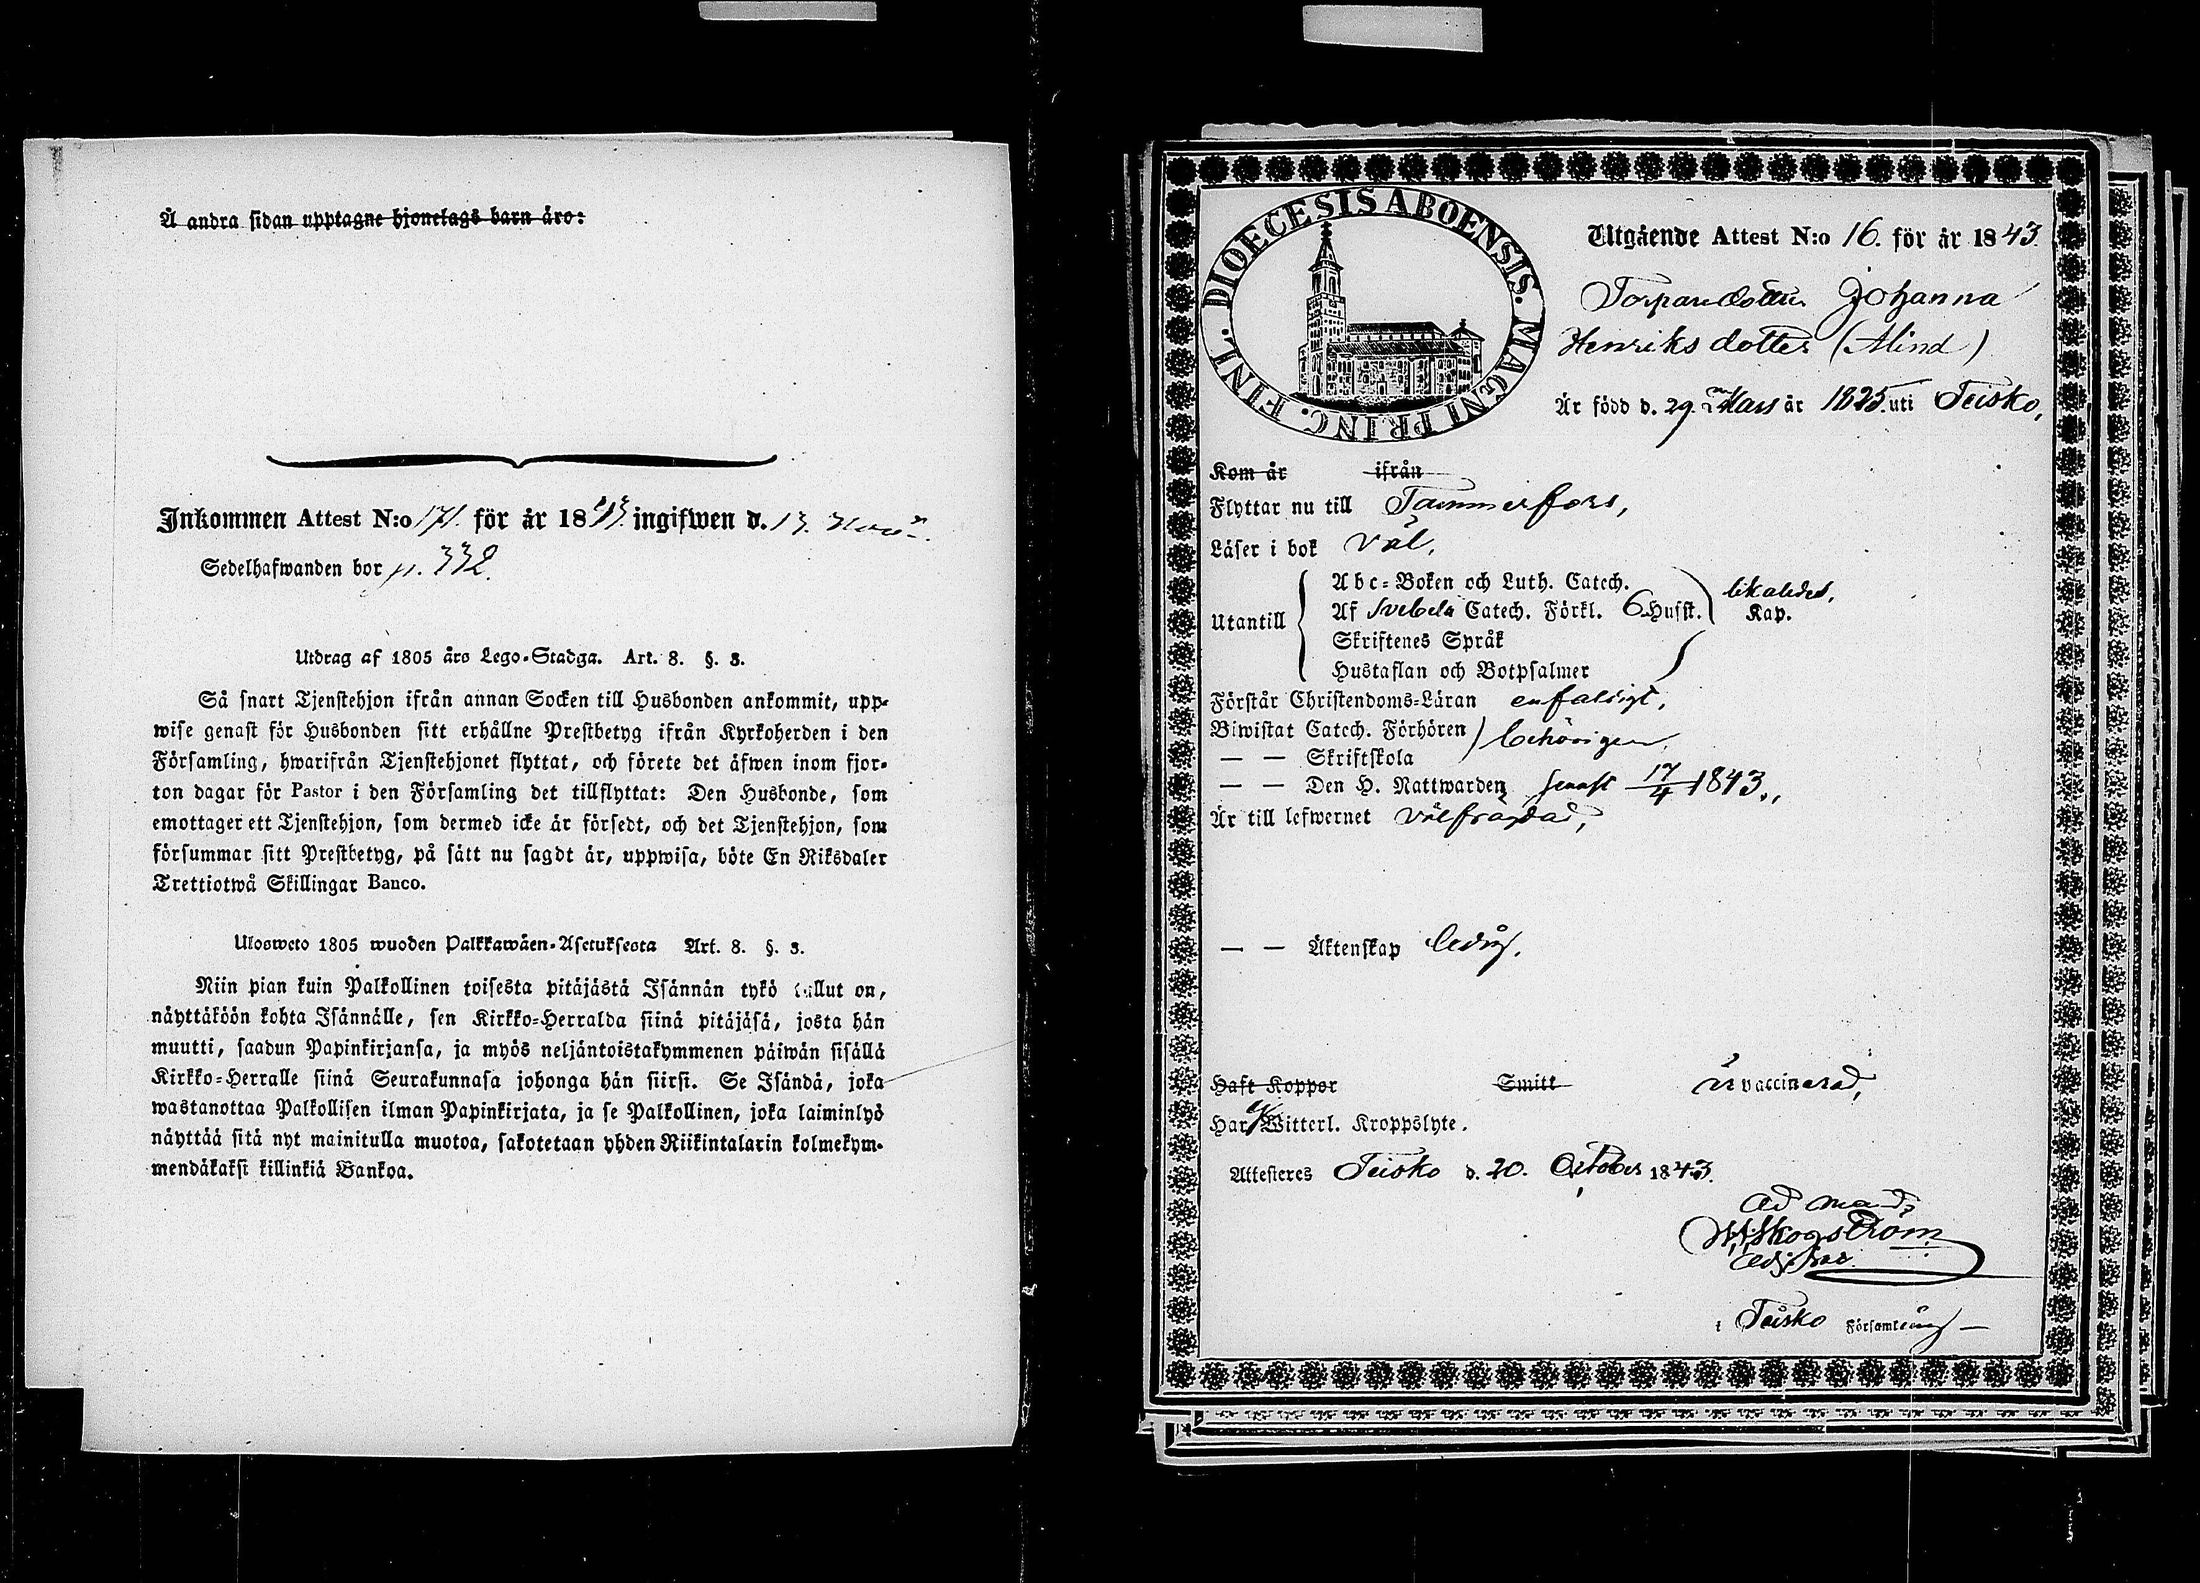 Å andra sidan upptagne hjonelags barn äro:
Inkommen Attest N:o 171. för år 1843. ingifwen d. 13. Nov
Sedelhafwanden bor p. 332.
Utdrag af 1805 års Lego-Stadga. Art. 8. §. 3.
Så snart Tjenstehjon ifrån annan Socken till Husbonden ankommit, upp-
wise genast för Husbonden sitt erhållne Prestbetyg ifrån Kyrkoherden i den
Församling, hwarifrån Tjenstehjonet flyttat, och förete det äfwen inom fjor-
ton dagar för Pastor i den Församling det tillflyttat: Den Husbonde, som
emottager ett Tjenstehjon, som dermed icke är försedt, och det Tjenstehjon, som
försummar sitt Prestbetyg, på sätt nu sagdt är, uppwisa, böte En Riksdaler
Trettiotwå Skillingar Banco.
Ulosweto 1805 wuoden Palkkawäen-Asetuksesta Art. 8. §. 3.
Niin pian kuin Palkollinen toisesta pitäjästä Isännän tykö tullut on,
näyttäköön kohta Isännälle, sen Kirkko-Herralda siinä pitäjäsä, josta hän
muutti, saadun Papinkirjansa, ja myös neljäntoistakymmenen päiwän sisällä
Kirkko-Herralle siinä Seurakunnasa johonga hän siirsi. Se Isändä, joka
wastanottaa Palkollisen ilman Papinkirjata, ja se Palkollinen, joka laiminlyö
näyttää sitä nyt mainitulla muotoa, sakotetaan yhden Riikintalarin kolmekym-
mendäkaksi killinkiä Bankoa.
DIOECESIS ABOENSIS. MAGNI PRINC. FINL.
Utgående Attest N:o 16. för år 1843.
Torparedotter Johanna
Henriksdotter (Alind)
Är född d. 29. Mars år 1825. uti Teisko,
Kom år ifrån
Flyttar nu till Tammerfors,
Läser i bok väl,
Utantill
Abc-Boken och Luth. Catech.
Af Svebelii Catech. Förkl. 6 Husst. likaledes, Kap.
Skriftenes Språk
Hustaflan och Botpsalmer
Förstår Christendoms-Läran enfaldigt,
Biwistat Catech. Förhören behörigen,
— — Skriftskola
— — Den H. Nattwarden senast 17/4 1843.,
Är till lefwernet välfrägdad,
— — Äktenskap ledig.
Haft Koppor Smitt är vaccinerad,
Har ej Witterl. Kroppslyte.
Attesteres Teisko d. 20. October 1843.
Ad mand:
Skogström
Adj:
i Teisko Församling